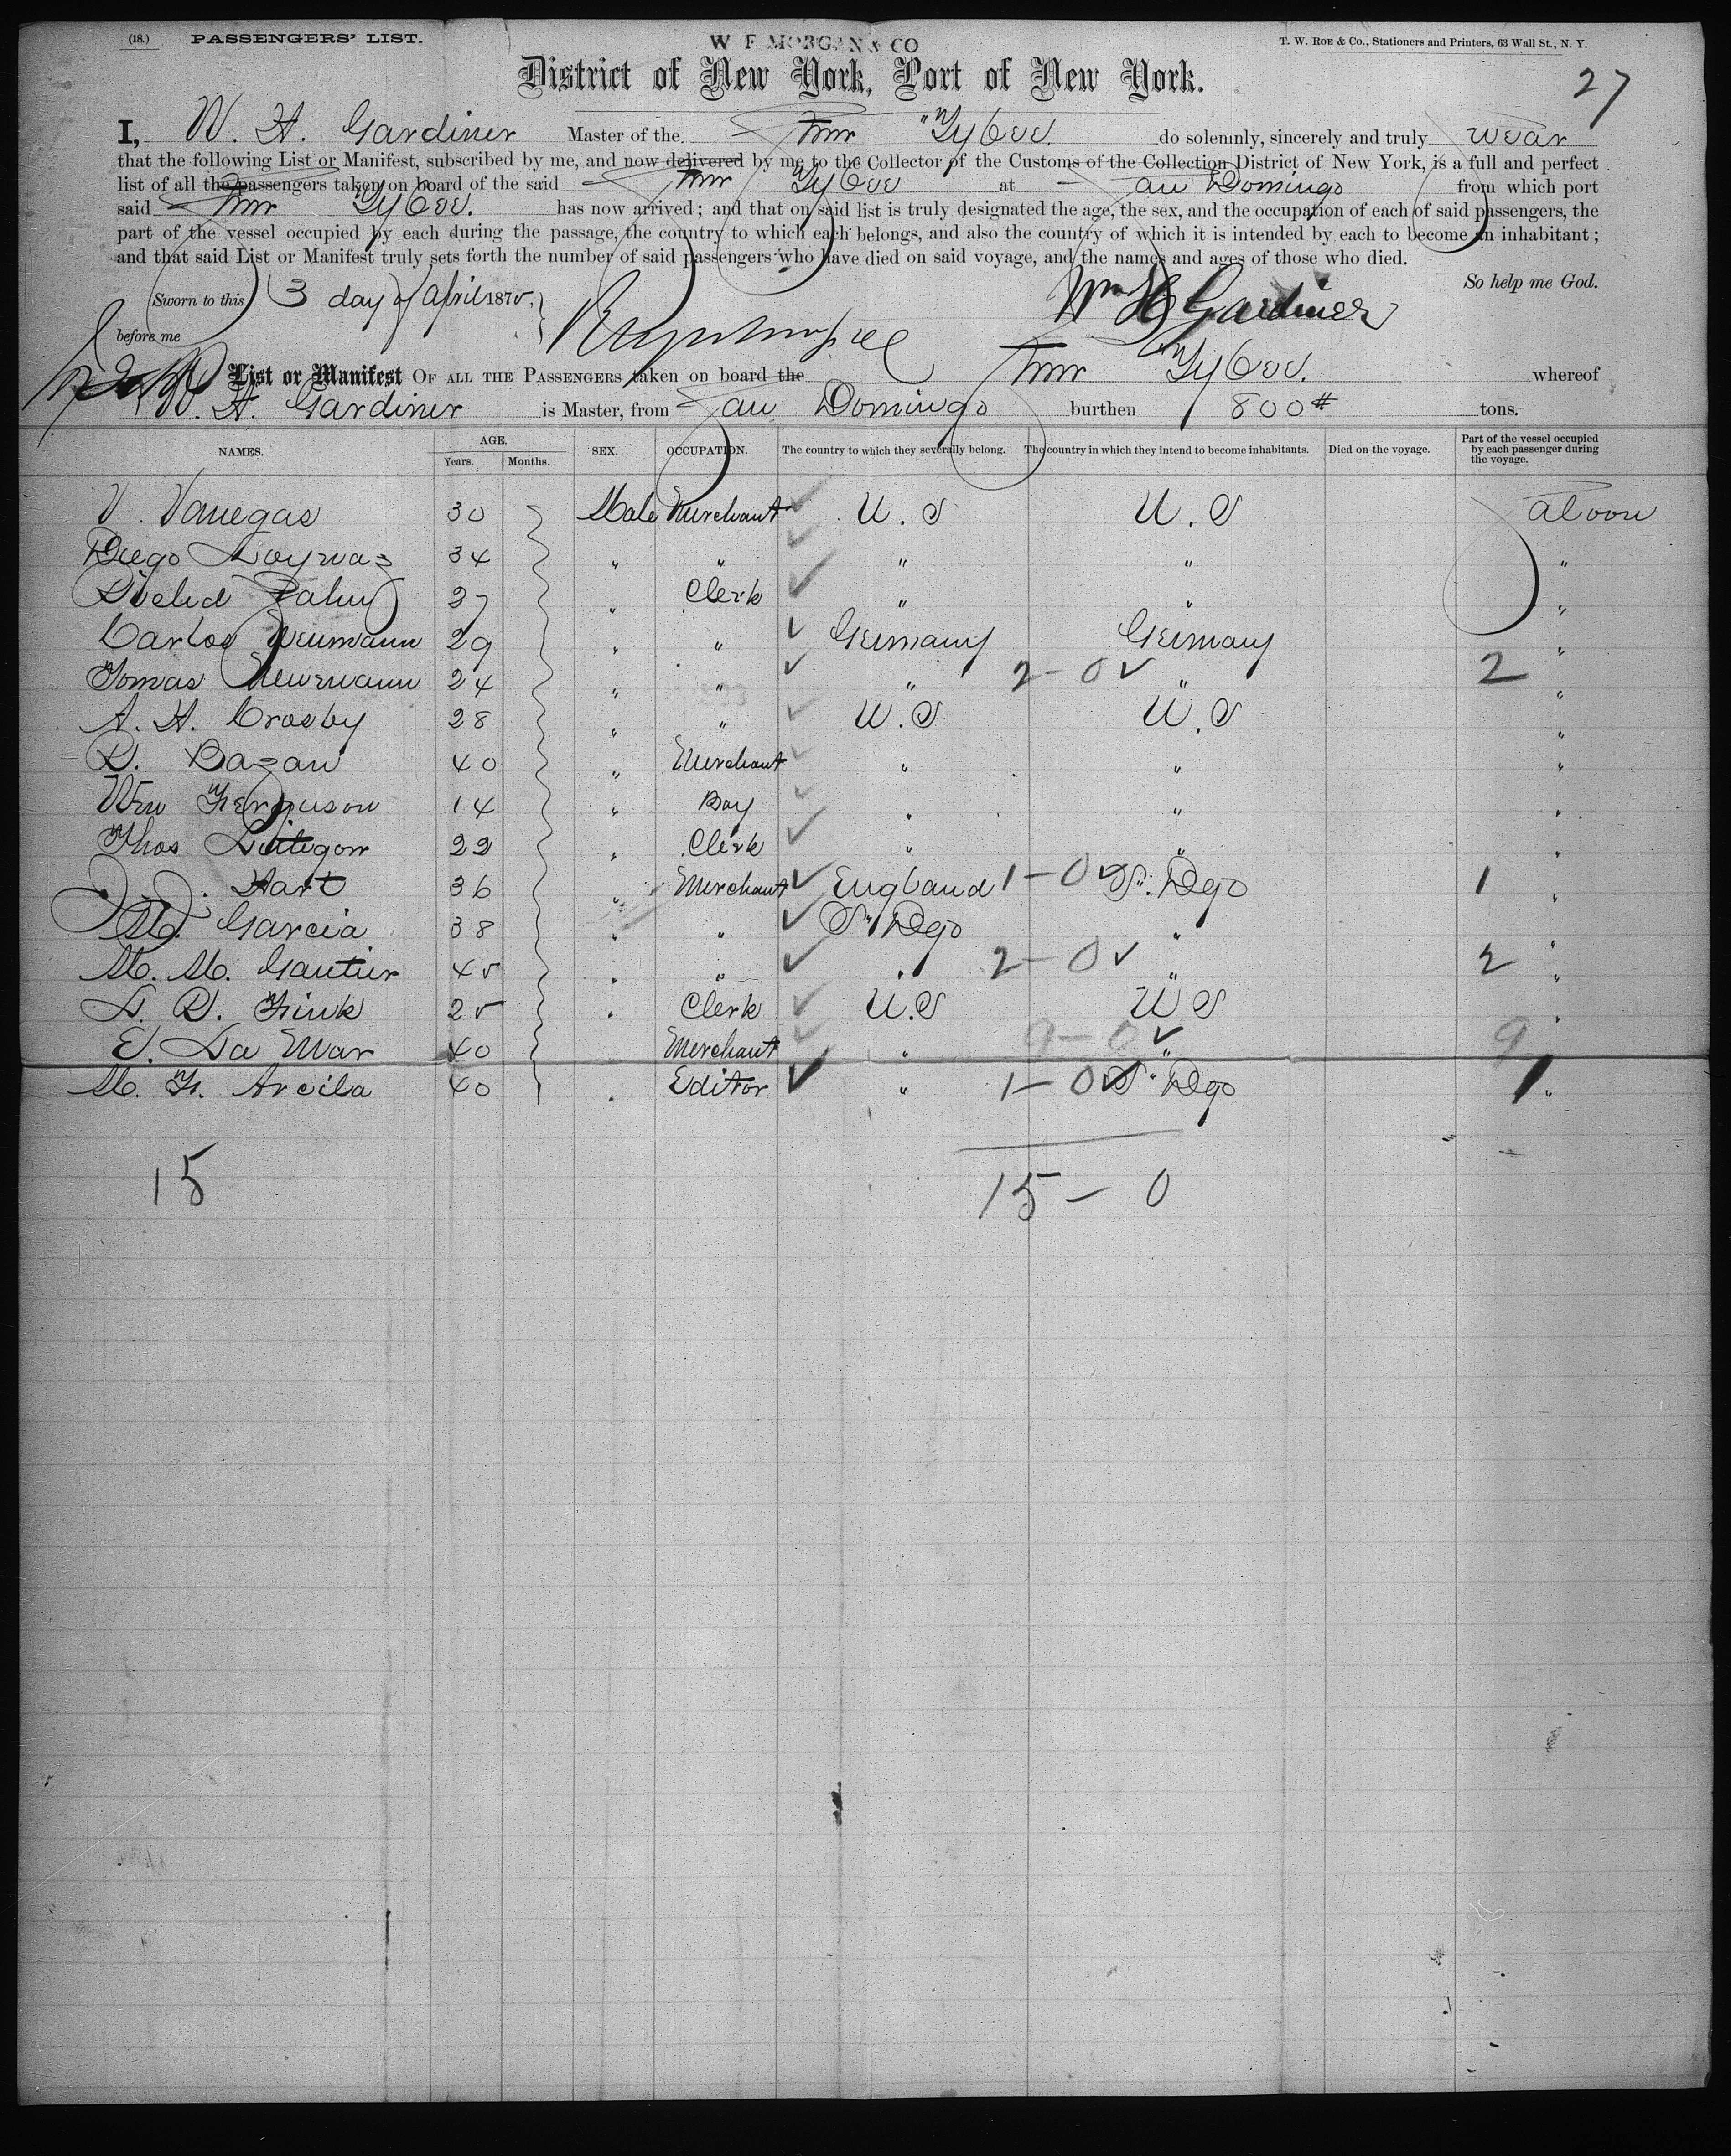 (18.) PASSENGERS' LIST.
W F MORGAN & CO
T. W. Roe & Co., Stationers and Printers, 63 Wall St., N. Y.
District of New York, Port of New York.
27
I, W. H. Gardiner Master of the Stmr "Tybee. do solemnly, sincerely and truly swear
that the following List or Manifest, subscribed by me, and now delivered by me to the Collector of the Customs of the Collection District of New York, is a full and perfect
list of all the passengers taken on board of the said Stmr Tybee at San Domingo from which port
said Stmr Tybee. has now arrived; and that on said list is truly designated the age, the sex, and the occupation of each of said passengers, the
part of the vessel occupied by each during the passage, the country to which each belongs, and also the country of which it is intended by each to become an inhabitant;
and that said List or Manifest truly sets forth the number of said passengers who have died on said voyage, and the names and ages of those who died.
So help me God.
Sworn to this 3 day of April 1875,
Wm H Gardiner
before me
List or Manifest Of all the Passengers taken on board the Stmr "Tybee. whereof
W. H. Gardiner is Master, from San Domingo burthen 800 # tons.
NAMES. AGE. Years. Months. SEX. OCCUPATION. The country to which they severally belong. The country in which they intend to become inhabitants. Died on the voyage. Part of the vessel occupied by each passenger during the voyage.
V. Vanegas 30 Male Merchant U.S U.S Saloon
Diego 34 " " " " "
27 " Clerk " " "
Carlos Neumann 29 " " Germany Germany "
Tomas Newmann 24 " " " 2-0 " 2 "
A. H. Crosby 28 " " U.S U.S "
D. Bazan 40 " Merchant " " "
Wm Ferguson 14 " Boy " " "
Thos 22 " Clerk " " "
Hart 36 " Merchant England 1-0 St. Dgo 1 "
M. Garcia 38 " " St Dgo " "
M. M. Gautier 45 " " " 2-0 " 2 "
L. D. Fink 25 " Clerk U.S U S "
E. La Mar 40 Merchant " 9-0 " 9
M. F. Arcila 40 " Editor " 1-0 St Dgo 1 "
15 15-0